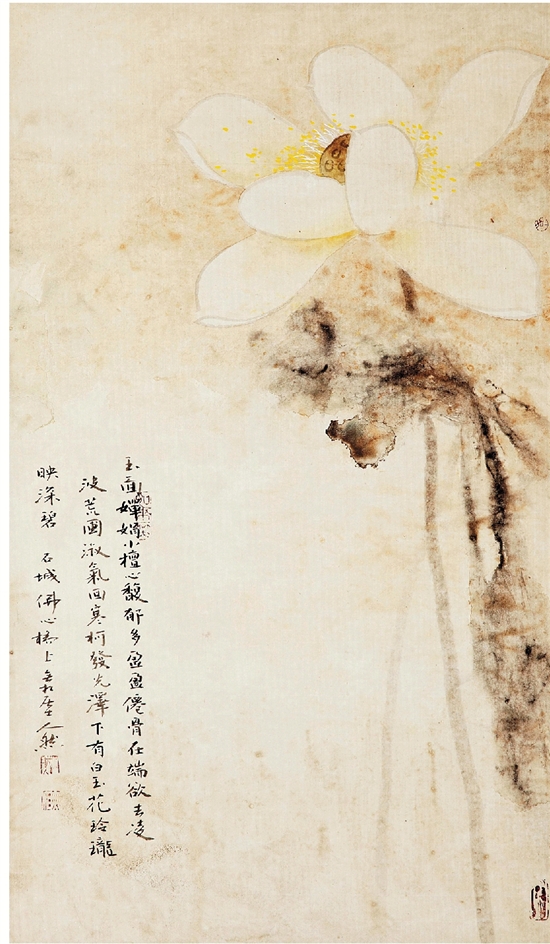 玉面婵娟小檀心馥郁多盈盈僊骨在端欲去凌
波荒園淑氣回寒柯發光澤下有白玉花玲瓏
映深碧 石城佛心橋上